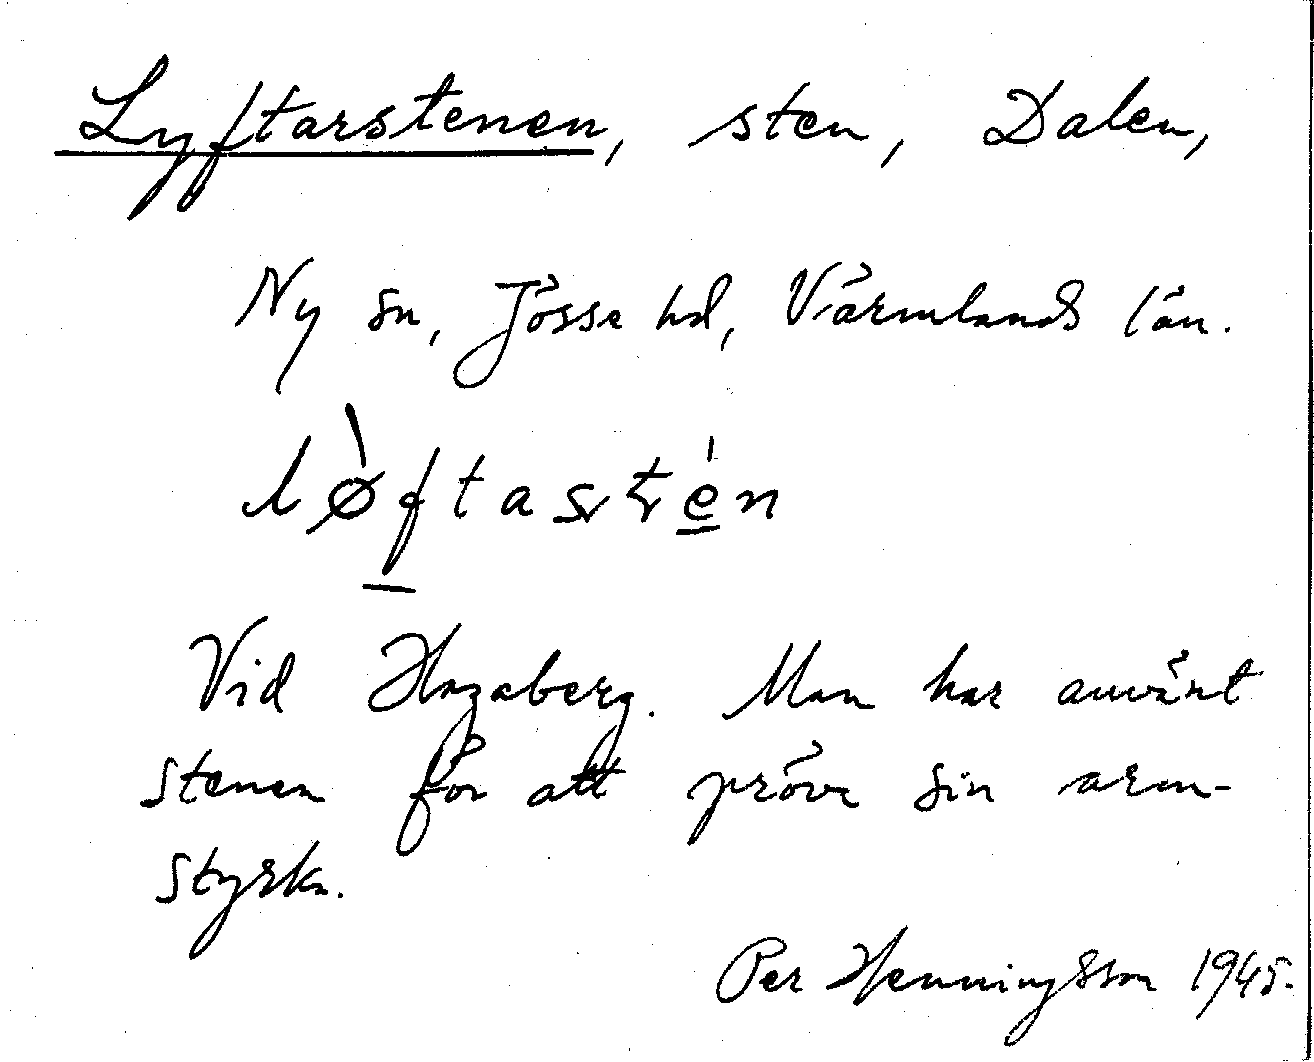 Lyftarstenen, sten, Dalen,
Ny sn, Jösse hd, Värmlands län.
lø̀ftastén
Vid Hagaberg. Man har använt
stenen för att pröva sin arm-
styrka.
Per Henningsson 1945.